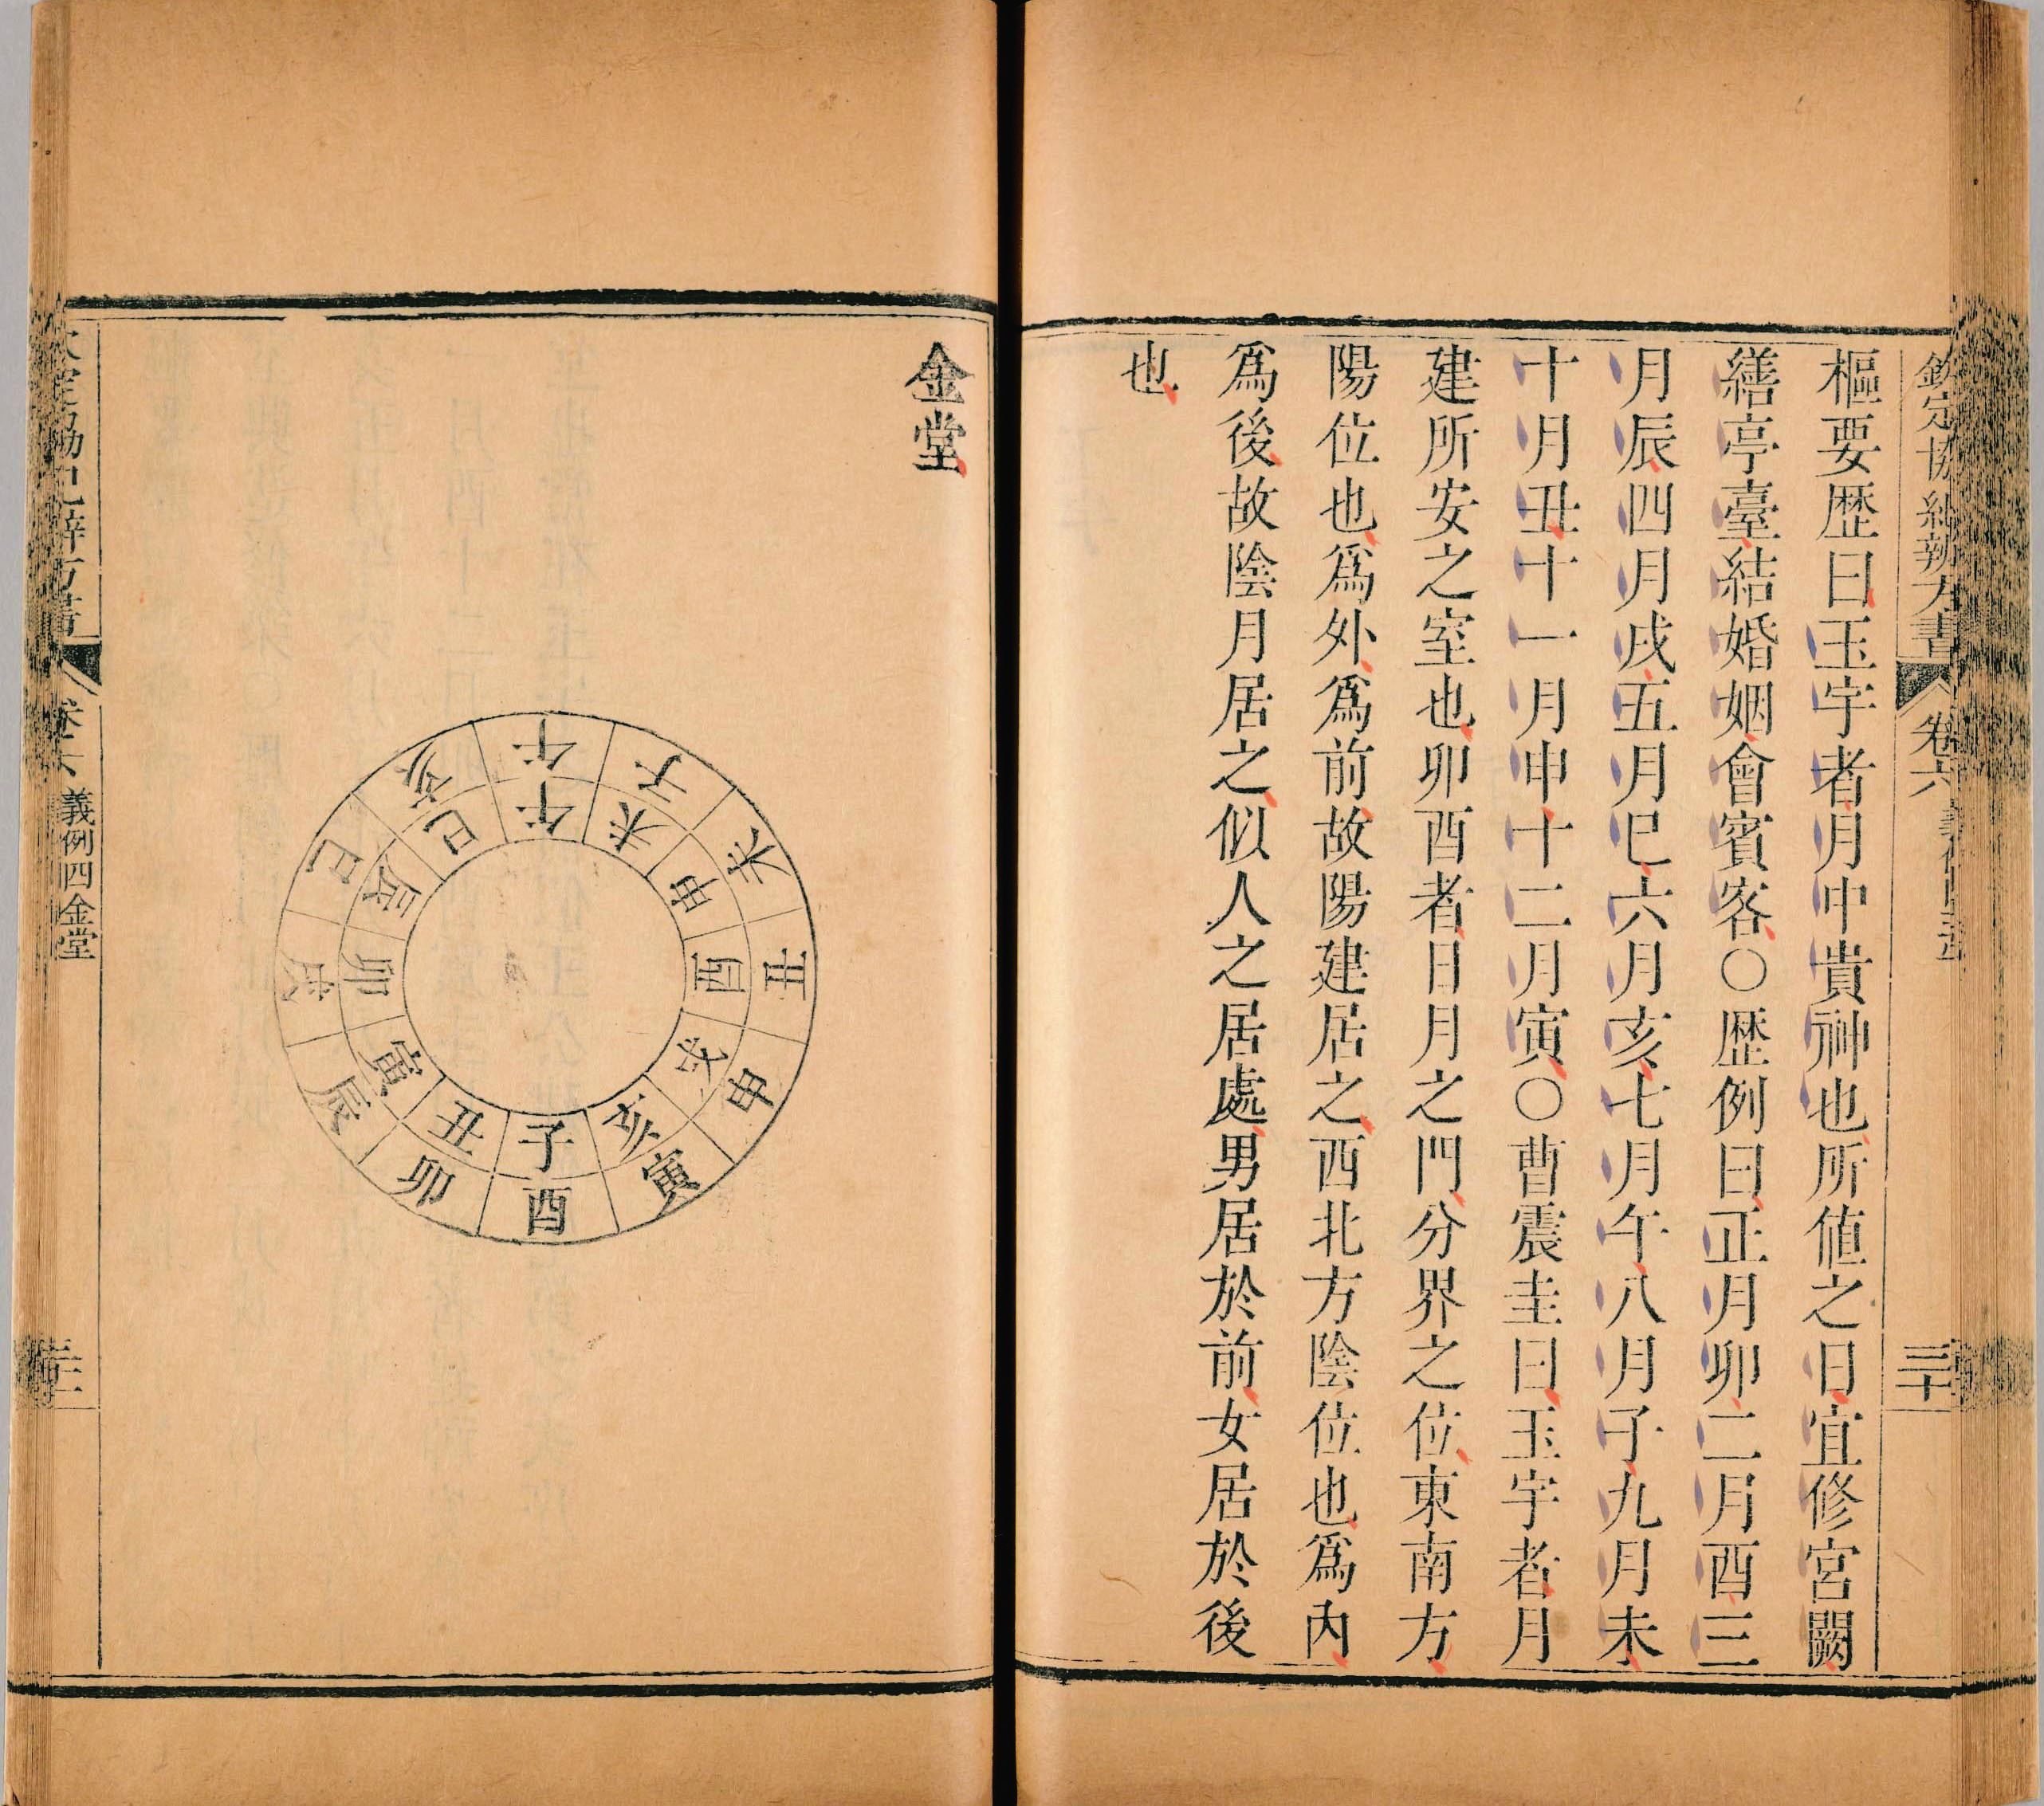 欽定協紀辨方書 卷六 三十
樞要歷曰玉宇者月中貴神也所値之日宜修宮闕
繕亭臺結婚姻會賓客○歷例曰正月卯二月酉三
月辰四月戌五月巳六月亥七月午八月子九月未
十月丑十一月申十二月寅○曹震圭曰玉宇者月
建所安之室也卯酉者日月之門分界之位東南方
陽位也爲外爲前故陽建居之西北方陰位也爲內
爲後故陰月居之似人之居處男居於前女居於後
也
金堂
午 子 未 丑 申 寅 酉 卯 辰 戌 巳 亥
午 未 申 酉 戌 亥 子 丑 寅 卯 辰 巳
辨方書 卷六 義例四金堂